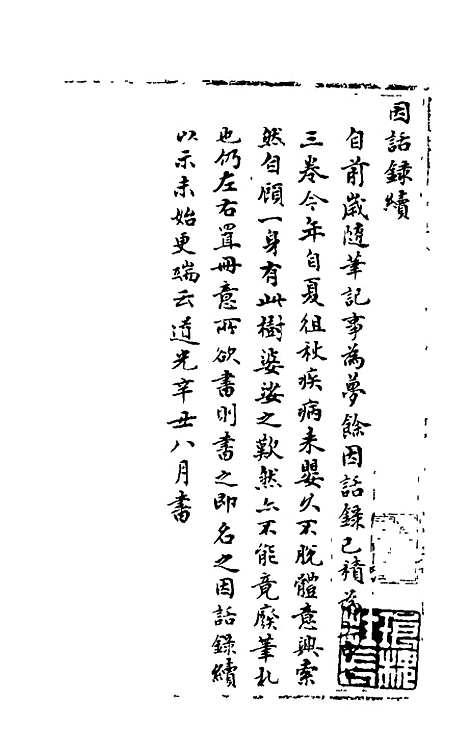 因話錄續
自前歲隨筆記事為夢餘因話錄已積為
三卷今年自夏徂秋疾病來嬰久不脫體意興索
然自顧一身有此樹婆娑之歎然亦不能竟廢筆札
也仍左右置冊意所欲書則書之即名之因話錄續
以示未始更端云道光辛丑八月書